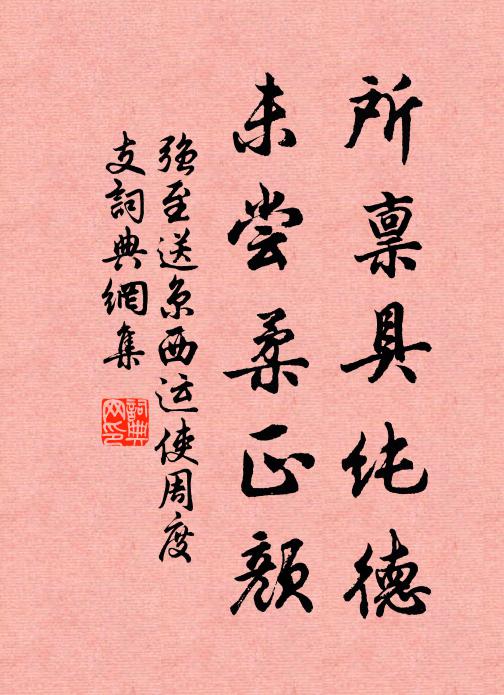 所禀具纯德
未尝柔正颜
强至送京西运使周度
支詞典網集
詞典
网印